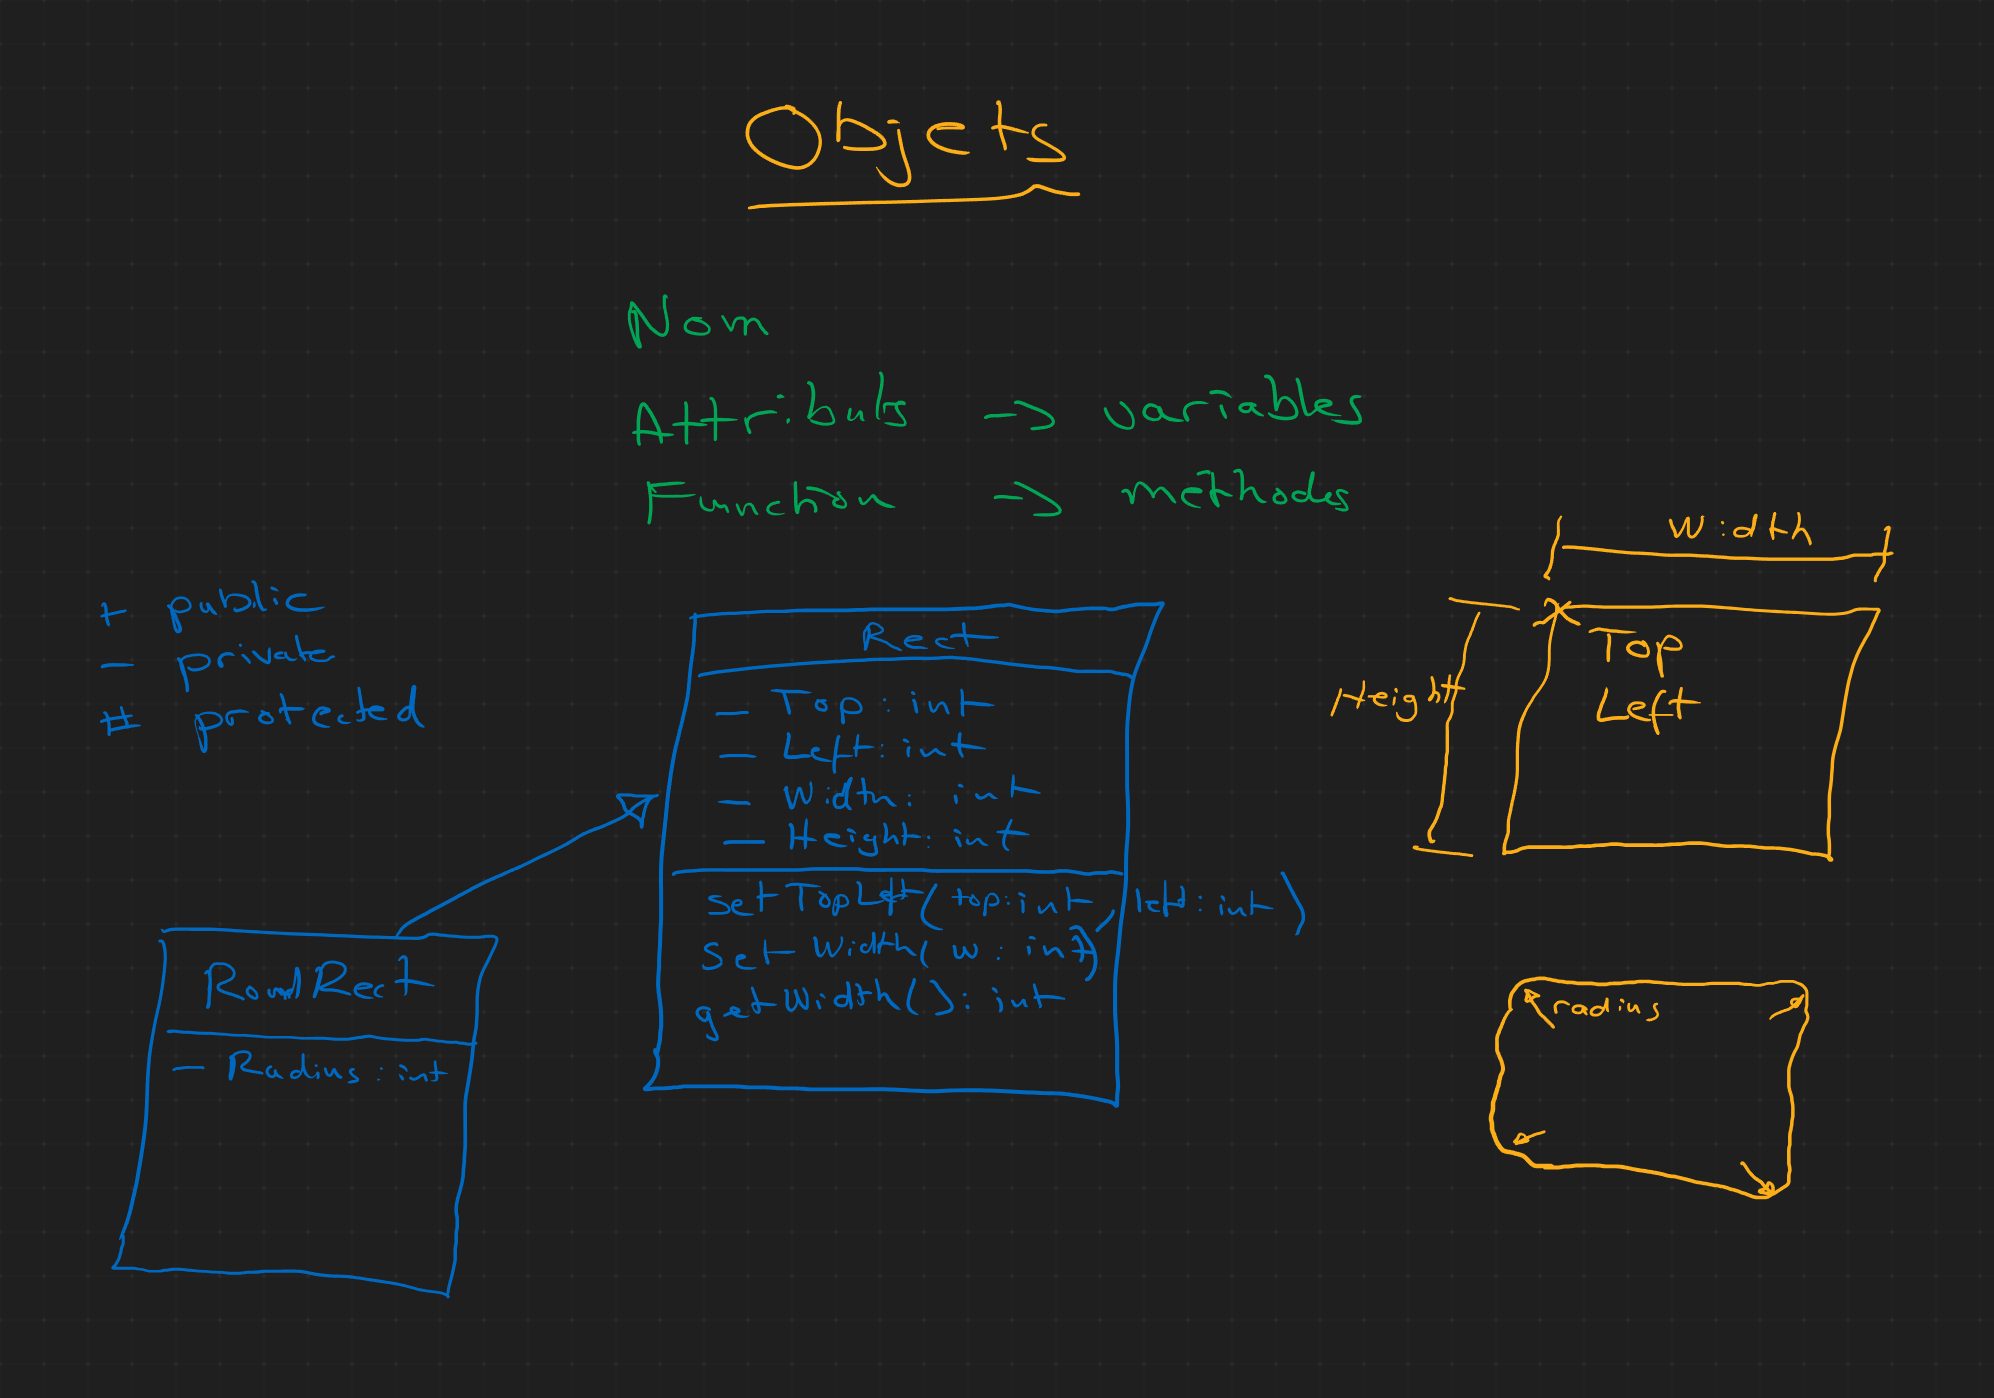 Objets
Nom
Attributs -> variables
Function -> methodes
+ public
- private
# protected
Rect
- Top : int
- Left : int
- Width : int
- Height : int
setTopLeft(top:int, left:int)
setWidth(w:int)
getWidth():int
RoundRect
- Radius : int
Width
Height
Top
Left
radius